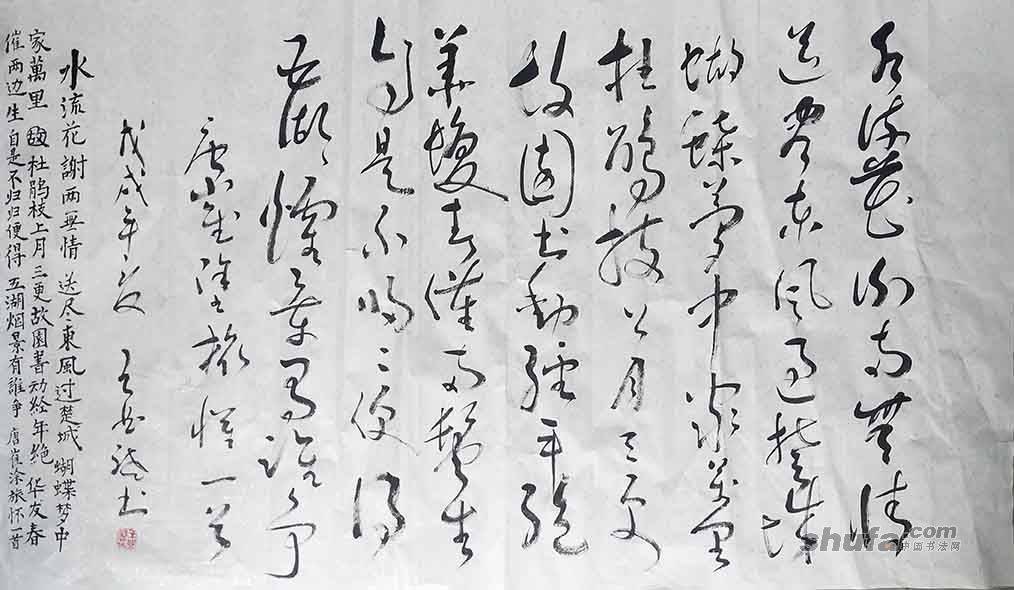 水流花謝两無情
送盡东風过楚城
蝴蝶夢中家萬里
杜鹃枝上月三更
故園书動經年绝
華髪春催两鬓生
自是不归々便得
五湖煙景有誰争
唐崔塗旅懷一首
戊戌年夏 王 书
水流花謝两無情 送尽東風过楚城 蝴蝶梦中
家萬里 杜鹃枝上月三更故園書动经年绝 华友春
催两边生自是不归归便得 五湖烟景有誰争 唐崔涂旅怀一首
shufa.com
中国书法网